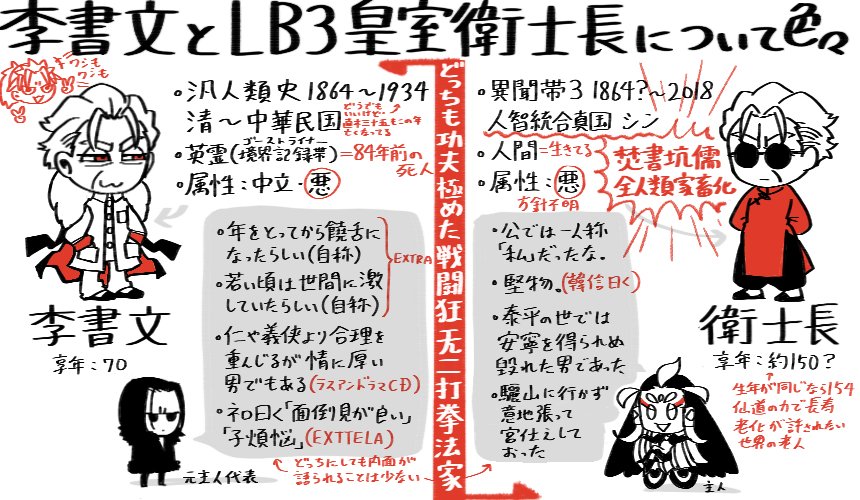 李書文とLB3皇室衛士長について色々
ワシも
ワシも
どっちも功夫極めた戦闘狂无二打拳法家
・汎人類史1864〜1934
清〜中華民国
どうでも
いいけど
直木三十五もこの年
亡くなってる
・英霊(境界記録帯)=84年前の
ゴーストライナー
死人
・属性:中立・悪
・年をとってから饒舌に
なったらしい(自称)
・若い頃は世間に激
していたらしい(自称)
EXTRA
・仁や義侠より合理を
重んじるが情に厚い
男でもある(ラスアンドラマCD)
・ネロ曰く「面倒見が良い」
「子煩悩」(EXTTELA)
李書文
享年:70
元主人代表
どっちにしても内面が
語られることは少ない
・異聞帯3 1864?〜2018
人智統合真国 シン
・人間=生きてる
・属性:悪
方針不明
焚書坑儒
全人類家畜化
・公では一人称
「私」だったな。
・堅物。(韓信曰く)
・泰平の世では
安寧を得られぬ
毀れた男であった
・驪山に行かず
意地張って
宮仕えして
おった
衛士長
享年:約150?
生年が同じなら154
仙道の力で長寿
老化が許されたい
世界の老人
主人